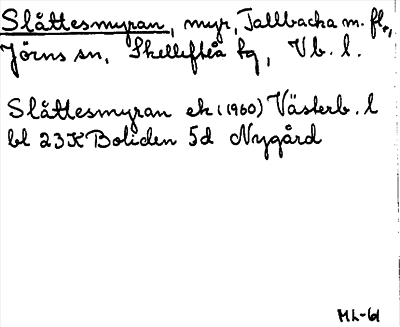 Slåttesmyran, myr, Tallbacka m. fl.,
Jörns sn, Skellefteå tg, Vb. l.
Slåttesmyran ek. (1960) Västerb. l
bl 23K Boliden 5d Nygård
ML-61